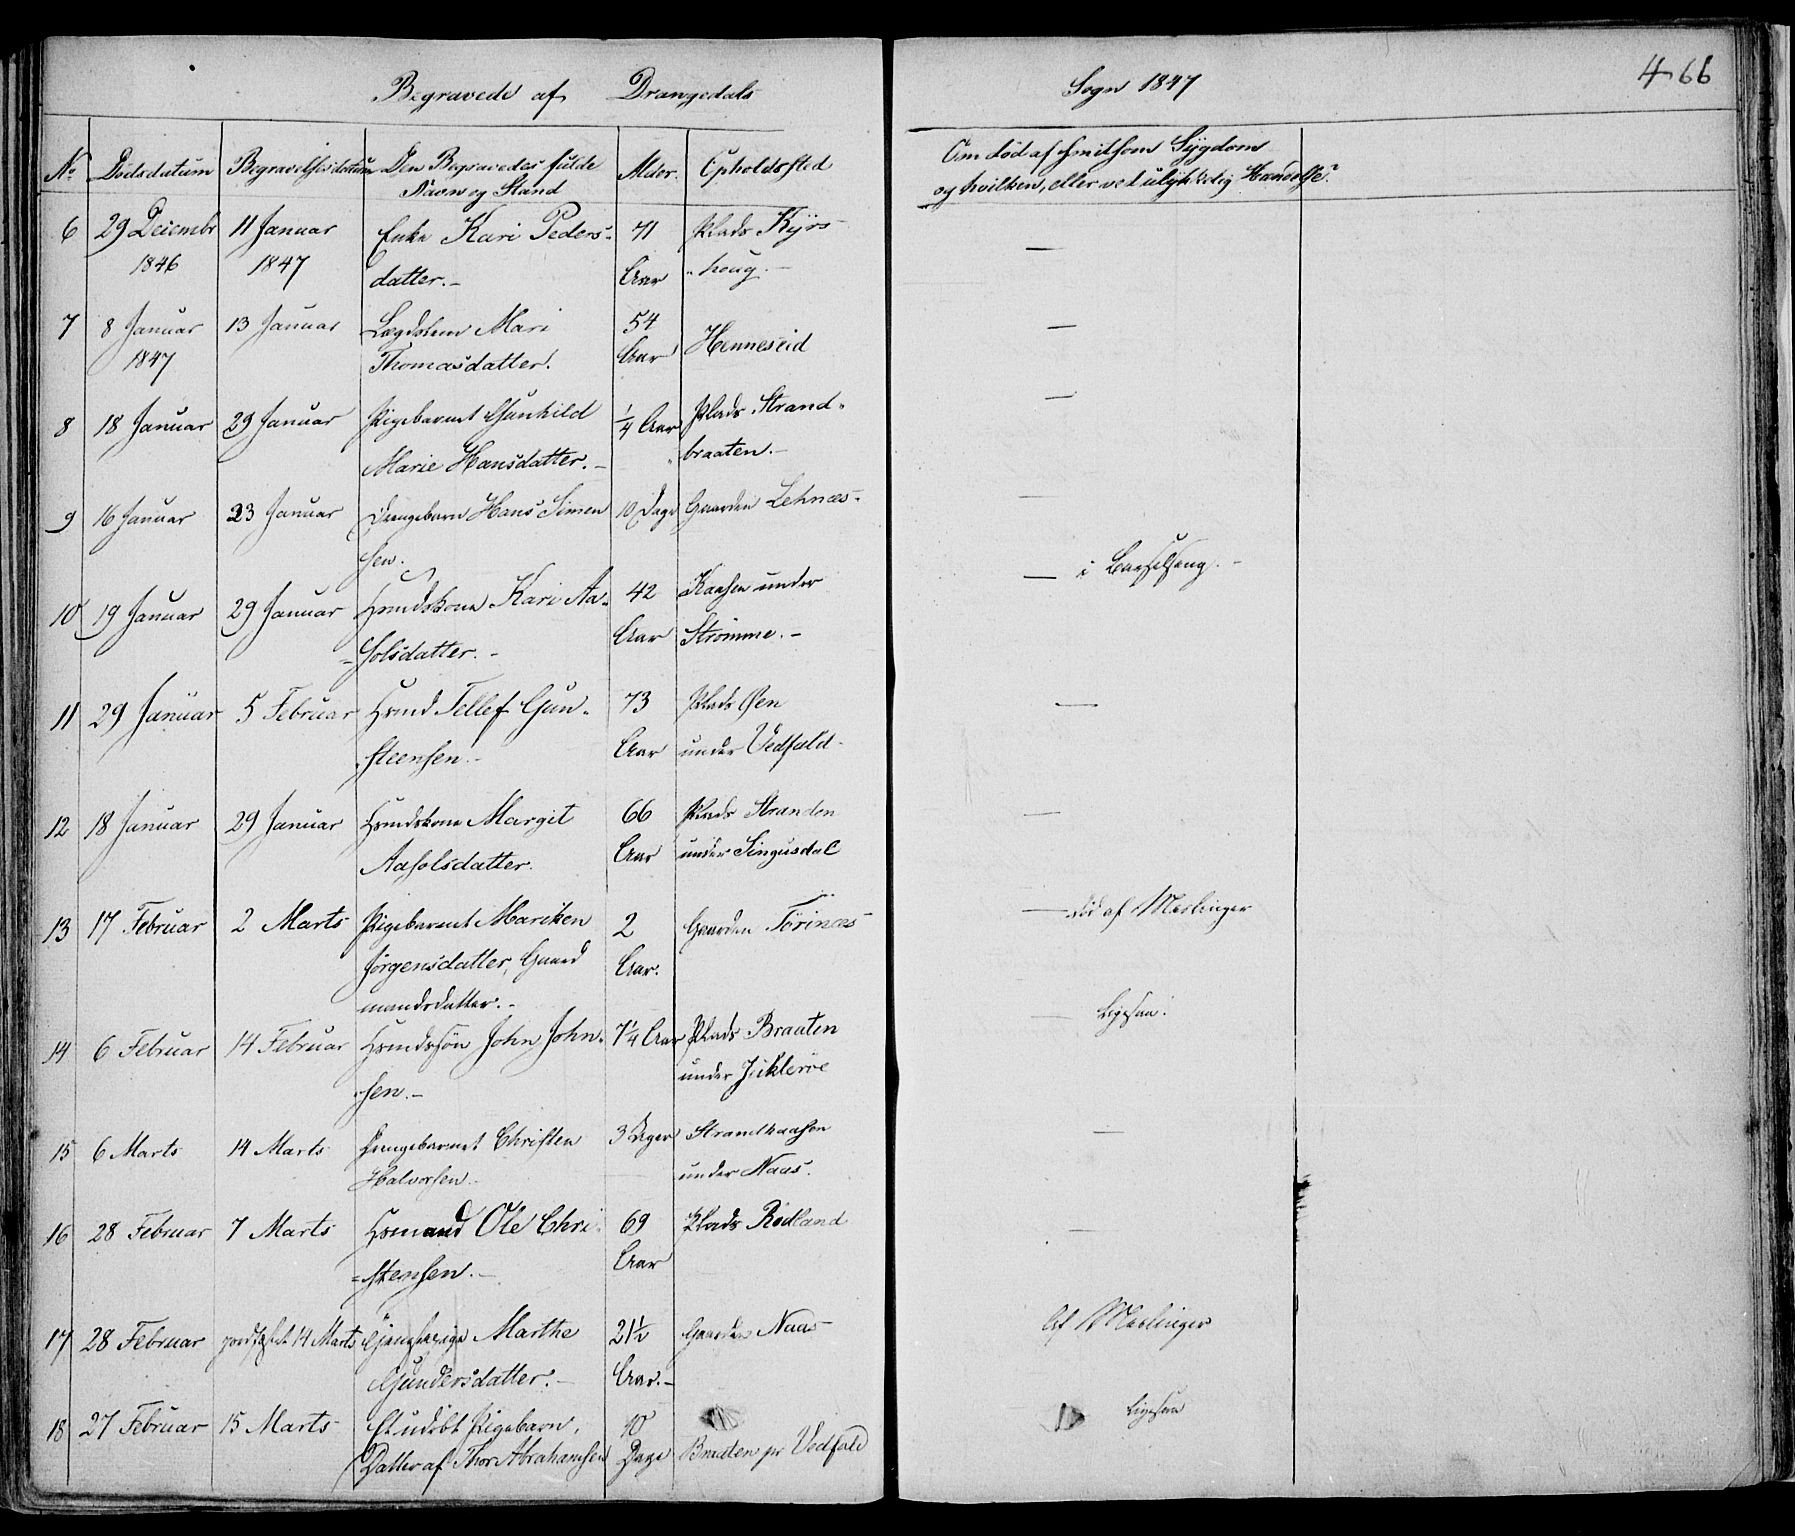 Begravede af Drangedals Sogn 1847
466
No Dødsdatum Begravelsesdatum Den Begravedes fulde Navn og Stand Alder. Opholdssted
Om død af smitsom Sygdom
og hvilken, eller ved ulykkelig Hændelse?
6 29 Decembr 11 Januar Enke Kari Peders- 71 Plads Kyrs- —
1846 1847 datter.- Aar houg.-
7 8 Januar 13 Januar Lægdslem Mari 54 Henneseid —
1847 Thomasdatter. Aar
8 18 Januar 29 Januar Pigebarnet Gunhild 1/4 Aar Plads Strand- —
Marie Hansdatter.- braaten.-
9 16 Januar 23 Januar Drengebarn Hans Simen 10 Dage Gaarden Lehnæs- —
sen.
10 19 Januar 29 Januar Hsmdskone Kari Aa- 42 Kaasen under — i Barselseng.-
solsdatter.- Aar Strømme.-
11 29 Januar 5 Februar Hsmd Tellef Gun- 73 Plads Øen —
steensen.- Aar under Vedfald-
12 18 Januar 29 Januar Hsmdskone Margit 66 Plads Stranden —
Aasolsdatter. Aar under Singusdal
13 17 Februar 2 Marts Pigebarnet Mariken 2 Gaarden Törinæs — død af Meslinger
Jørgensdatter, Gaard Aar.
mandsdatter.-
14 6 Februar 14 Februar Hsmdssøn John John- 7 1/4 Aar Plads Braaten — Ligesaa.
sen.- under
15 6 Marts 14 Marts Drengebarnet Christen 3 Uger Strandkaasen —
Halvorsen.- under Naas.
16 28 Februar 7 Marts Hsmand Ole Chri- 69 Plads Rødland —
stensen.- Aar
17 28 Februar jordfæstet 14 Marts Marthe 21 1/2 Gaarden Naas- Af Meslinger
Gundersdatter.- Aar.-
18 27 Februar 15 Marts Et udøbt Pigebarn, 10 Ligesaa
Datter af Thor Abrahamsen Dage Braaten pr Vedfald